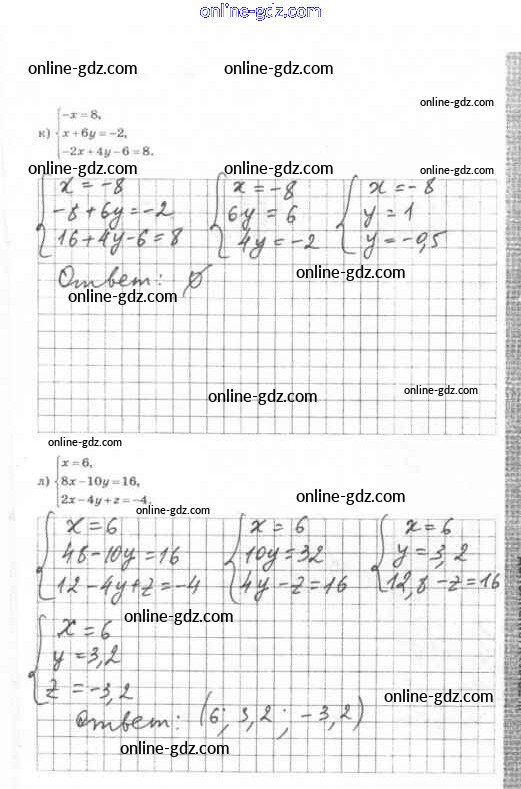 online-gdz.com
online-gdz.com online-gdz.com
online-gdz.com
-x = 8,
к) x + 6y = -2,
-2x + 4y - 6 = 8.
online-gdz.com online-gdz.com online-gdz.com
x = -8 x = -8 x = -8
-8 + 6y = -2 6y = 6 y = 1
16 + 4y - 6 = 8 4y = -2 y = -0,5
online-gdz.com
Ответ: ∅
online-gdz.com
online-gdz.com online-gdz.com
online-gdz.com
x = 6,
л) 8x - 10y = 16,
2x - 4y + z = -4.
online-gdz.com
online-gdz.com
x = 6 x = 6 x = 6
48 - 10y = 16 10y = 32 y = 3,2
12 - 4y + z = -4 4y - z = 16 12,8 - z = 16
online-gdz.com
x = 6
y = 3,2
z = -3,2
online-gdz.com
Ответ: (6; 3,2; -3,2)
online-gdz.com